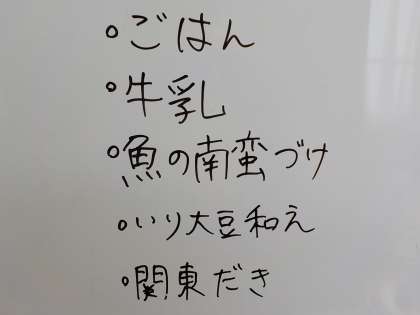 ・ごはん
・牛乳
・魚の南蛮づけ
・いり大豆和え
・関東だき